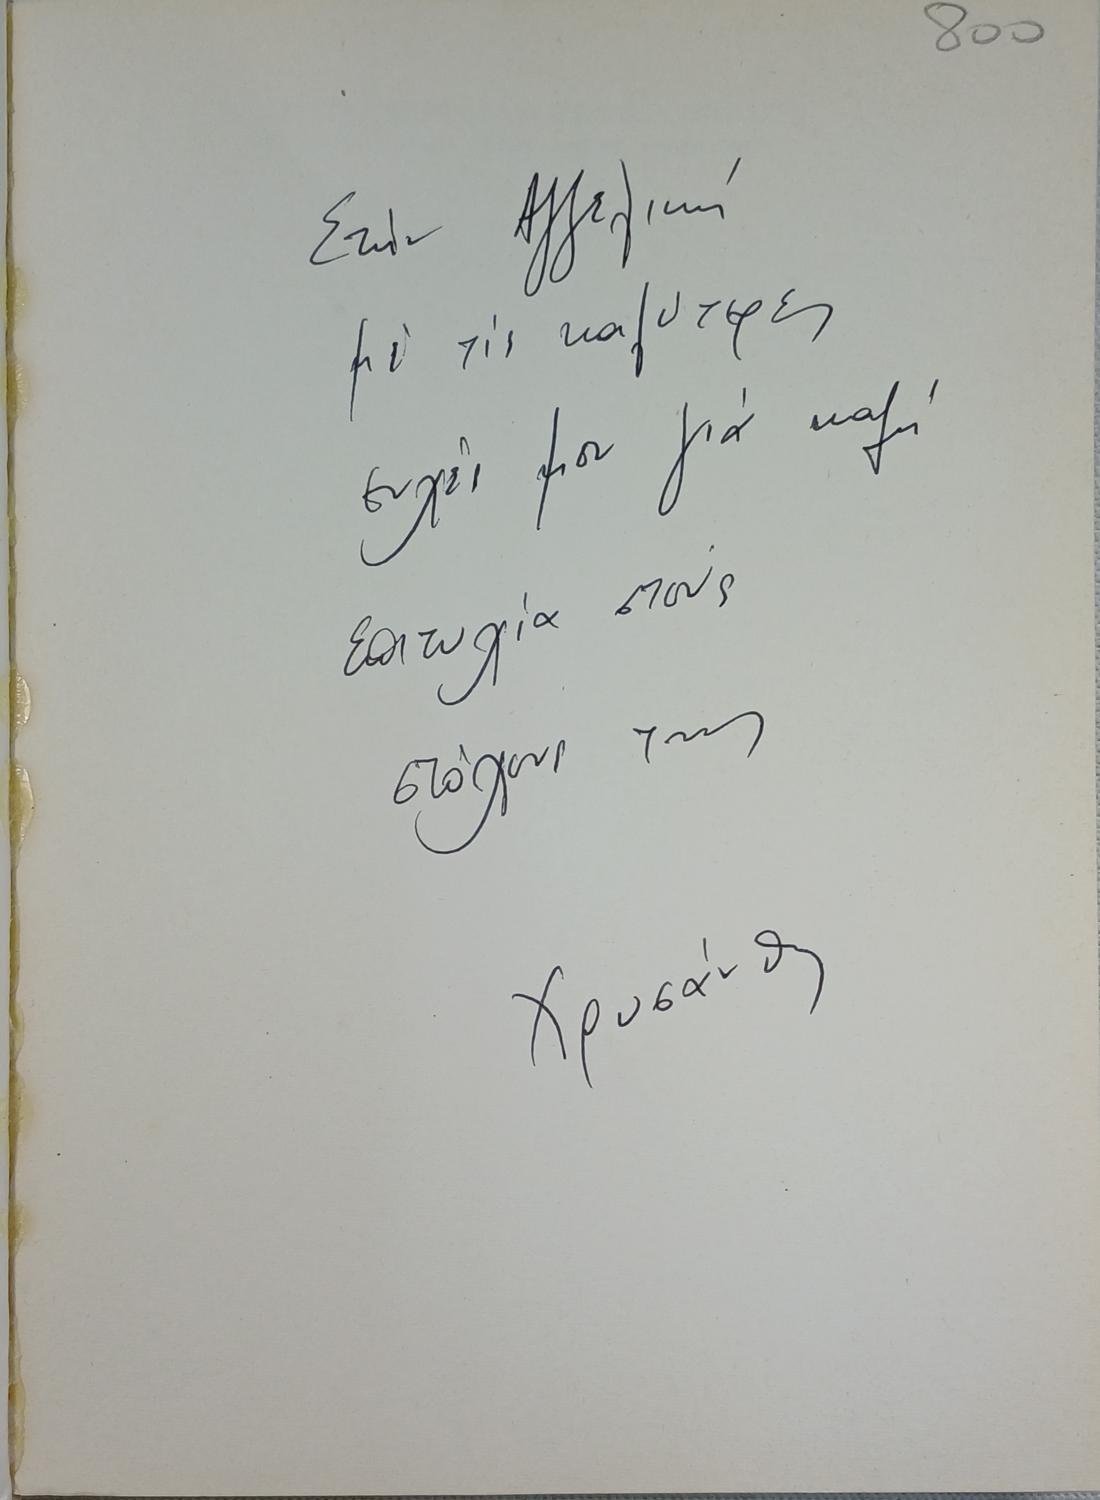 800
Στήν Αγγελική
μέ τίς καλύτερες
ευχές μου γιά καλή
επιτυχία στούς
στόχους της
Χρυσάνθη